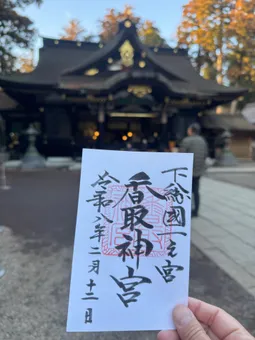 下総国一之宮
香取神宮
令和八年二月十二日